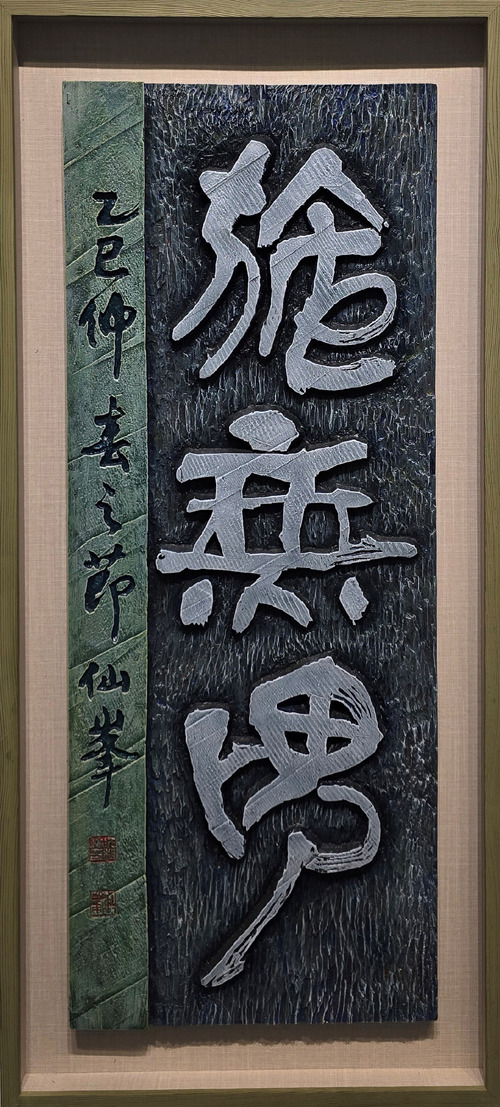 施無畏
乙巳仲春之節 仙峯